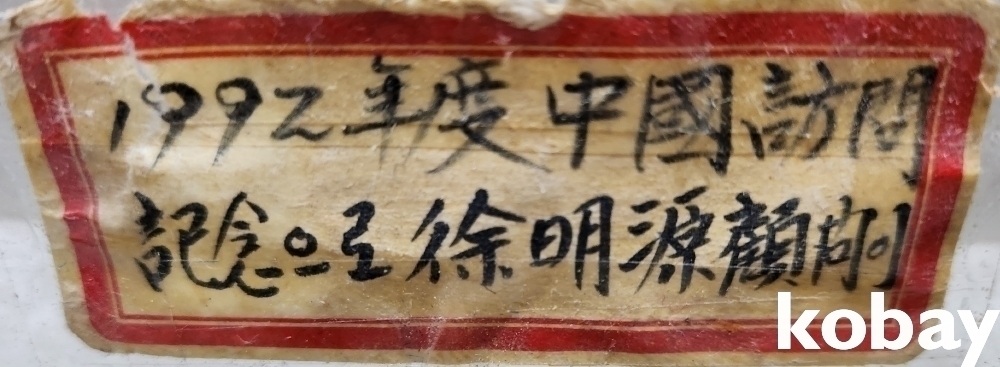 1992年度 中國訪問
記念으로 徐明源顧問
kobay